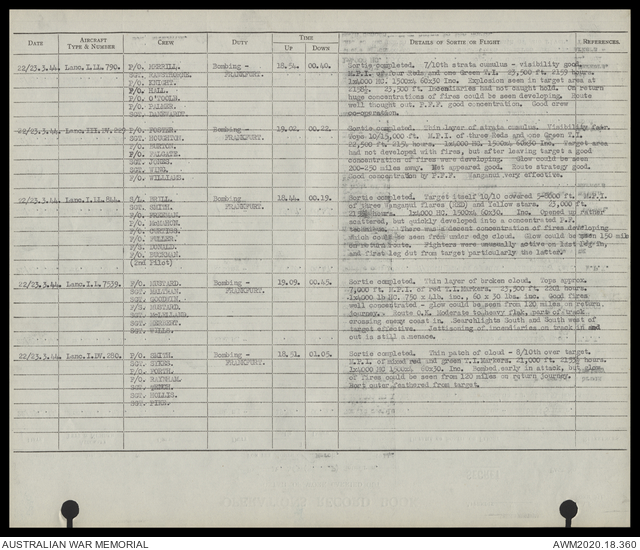 DATE AIRCRAFT TYPE & NUMBER CREW DUTY TIME UP DOWN DETAILS OF SORTIE OR FLIGHT REFERENCES
22/23.3.44. Lanc.I.LL.790. P/O. MERRILL. Bombing - 18.54. 00.40. Sortie completed. 7/10th strata cumulus - visibility good.
FRANKFURT. M.P.I. of four Reds and one Green T.I. 23,500 ft. 2159 hours
P/O. KNIGHT. 1x4000 HC. 1500x4 60x30 Inc. Explosion seen in target area at
P/O. HALL. 23,500 ft. Incendiaries had not caught hold. On return
P/O. O'TOOLE. huge concentrations of fires could be seen developing. Route
P/O. PALMER. well thought out. P.F.F. good concentration. Good crew
co-operation.
22/23.3.44. Lanc.III. P/O. FOSTER. Bombing - 19.02. 00.22. Sortie completed. Thin layer of strata cumulus. Visibility fair.
SGT. HOUGHTON. FRANKFURT. Tops 10/15,000 ft. M.P.I. of three Reds and one Green T.I.
22,500 ft. 2152 hours. 1x4000 HC. 1500x4 60x30 Inc. Target area
had not developed with fires, but after leaving target a good
SGT. JONES. concentration of fires were developing. Glow could be seen
200-250 miles away. Not appeared good. Route strategy good.
P/O. WILLIAMS. Good concentration by P.F.F. Wanganui very effective.
22/23.3.44. Lanc.I.LL.844. S/L. BRILL. Bombing 18.44. 00.19. Sortie completed. Target itself 10/10 covered 5-8000 ft. M.P.I.
SGT. SMITH. FRANKFURT. of three Wanganui flares (RED) and Yellow stars. 23,000 ft.
P/O. FREEMAN. hours. 1x4000 HC. 1500x4 60x30. Inc. Opened up rather
P/O. McMAHON. scattered, but quickly developed into a concentrated P.F.F.
technique. There was a decent concentration of fires developing
P/O. FULLER. which could be seen from under edge cloud. Glow could be seen 150 mile
P/S. DONALD. on return route. Fighters were unusually active on last leg in,
and first leg out from target particularly the latter.
(2nd Pilot)
22/23.3.44. Lanc.I.LL.7539. P/O. MUSTARD. Bombing - 19.09. 00.45. Sortie completed. Thin layer of broken cloud. Tops approx.
FRANKFURT. 7,000 ft. M.P.I. of red T.I.Markers. 23,500 ft. 2201 hours.
SGT. GOODWIN. 1x4000 lb HC. 750 x 4lb. inc., 60 x 30 lbs. inc. Good fires
SGT. MUSTARD. well concentrated - glow could be seen from 120 miles on return
SGT. McLELLAND. journey. Route O.K. Moderate to heavy flak, parts of track
SGT. KENNEDY. crossing enemy coast in. Searchlights South and South west of
SGT. WELLS. target effective. Jettisoning of incendiaries on track in and
out is still a menace.
22/23.3.44. Lanc.I.DV.280. P/O. SMITH. Bombing - 18.51. 01.05. Sortie completed. Thin patch of cloud - 8/10th over target.
SGT. SYKES. FRANKFURT. M.P.I. of mixed red and green T.I.Markers. 21,000 ft. hours.
P/O. FORTH. 1x4000 HC 1500x4 60x30. Inc. Bombed early in attack, but glow
P/O. RAYTHAM. of fires could be seen from 120 miles on return journey.
Port outer feathered from target.
SGT. HOLLIS.
AUSTRALIAN WAR MEMORIAL AWM2020.18.360